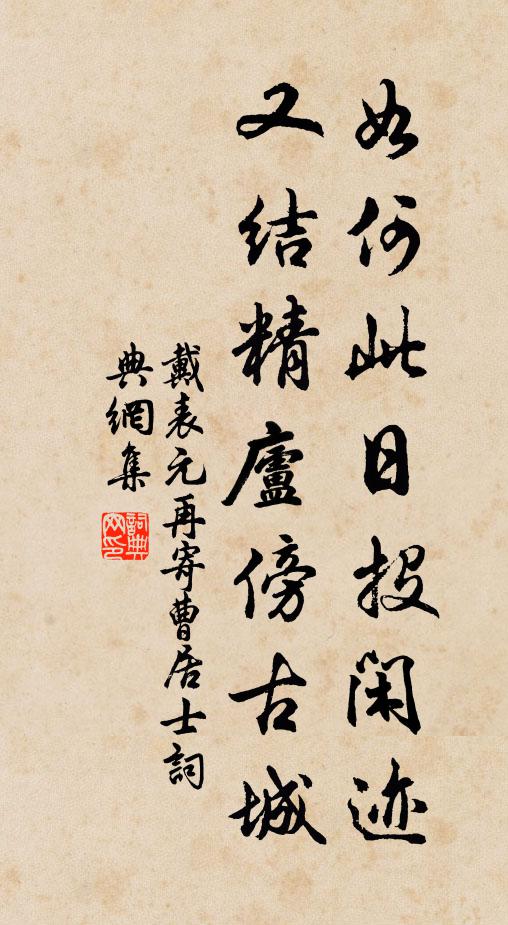 如何此日投閑迹
又结精廬傍古城
戴表元再寄曹居士詞
典網集
詞典网印